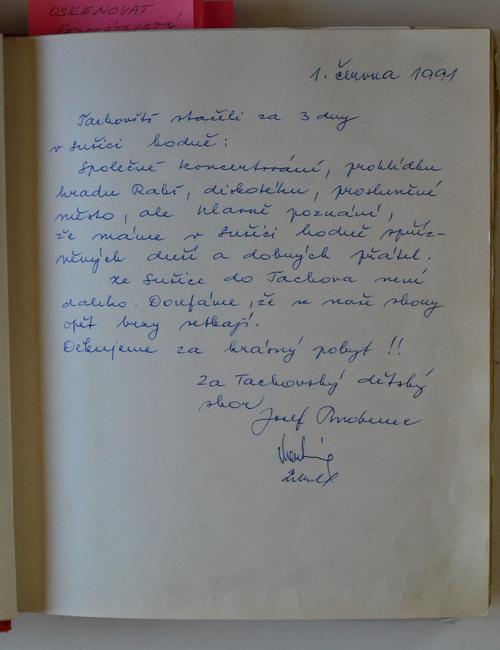 OSKENOVAT
1. června 1991
Tachovští stačili za 3 dny
v Sušici hodně:
Společné koncertování, prohlídku
hradu Rabí, diskotéku, prosluněné
město, ale hlavně poznání,
že máme v Sušici hodně spříz-
něných duší a dobrých přátel.
Ze Sušice do Tachova není
daleko. Doufáme, že se naše sbory
opět brzy setkají.
Děkujeme za krásný pobyt !!
Za Tachovský dětský
sbor
Josef